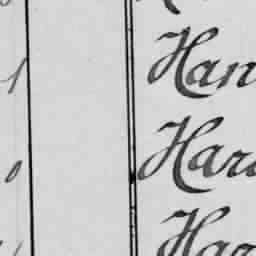 1 Han
0 Har
Har